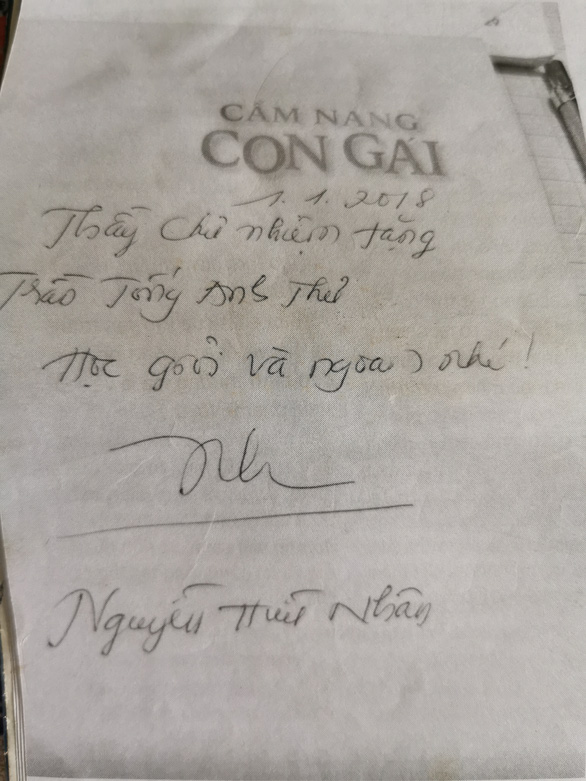 CẨM NANG
CON GÁI
1.1.2018
Thầy chủ nhiệm tặng
Trần Tống Anh Thư
Học giỏi và ngoan nhé!
Nguyễn Hữu Nhân